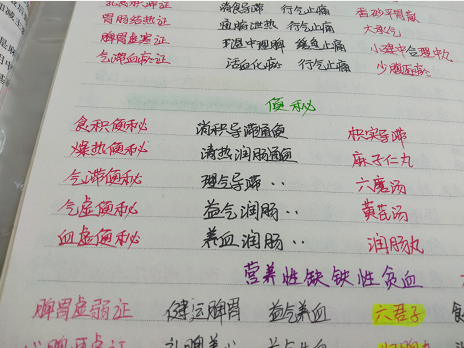 消食导滞 行气止痛 香砂平胃散
胃肠结热证 通腑泄热 行气止痛 大承气
脾胃虚寒证 温中理脾 缓急止痛 小建中合理中丸
气滞血瘀证 活血化瘀 行气止痛 少腹逐瘀
便秘
食积便秘 消积导滞通便 枳实导滞
燥热便秘 清热润肠通便 麻子仁丸
气滞便秘 理气导滞 ‥ 六磨汤
气虚便秘 益气润肠 ‥ 黄芪汤
血虚便秘 养血润肠 ‥ 润肠丸
营养性缺铁性贫血
脾胃虚弱证 健运脾胃 益气养血 六君子